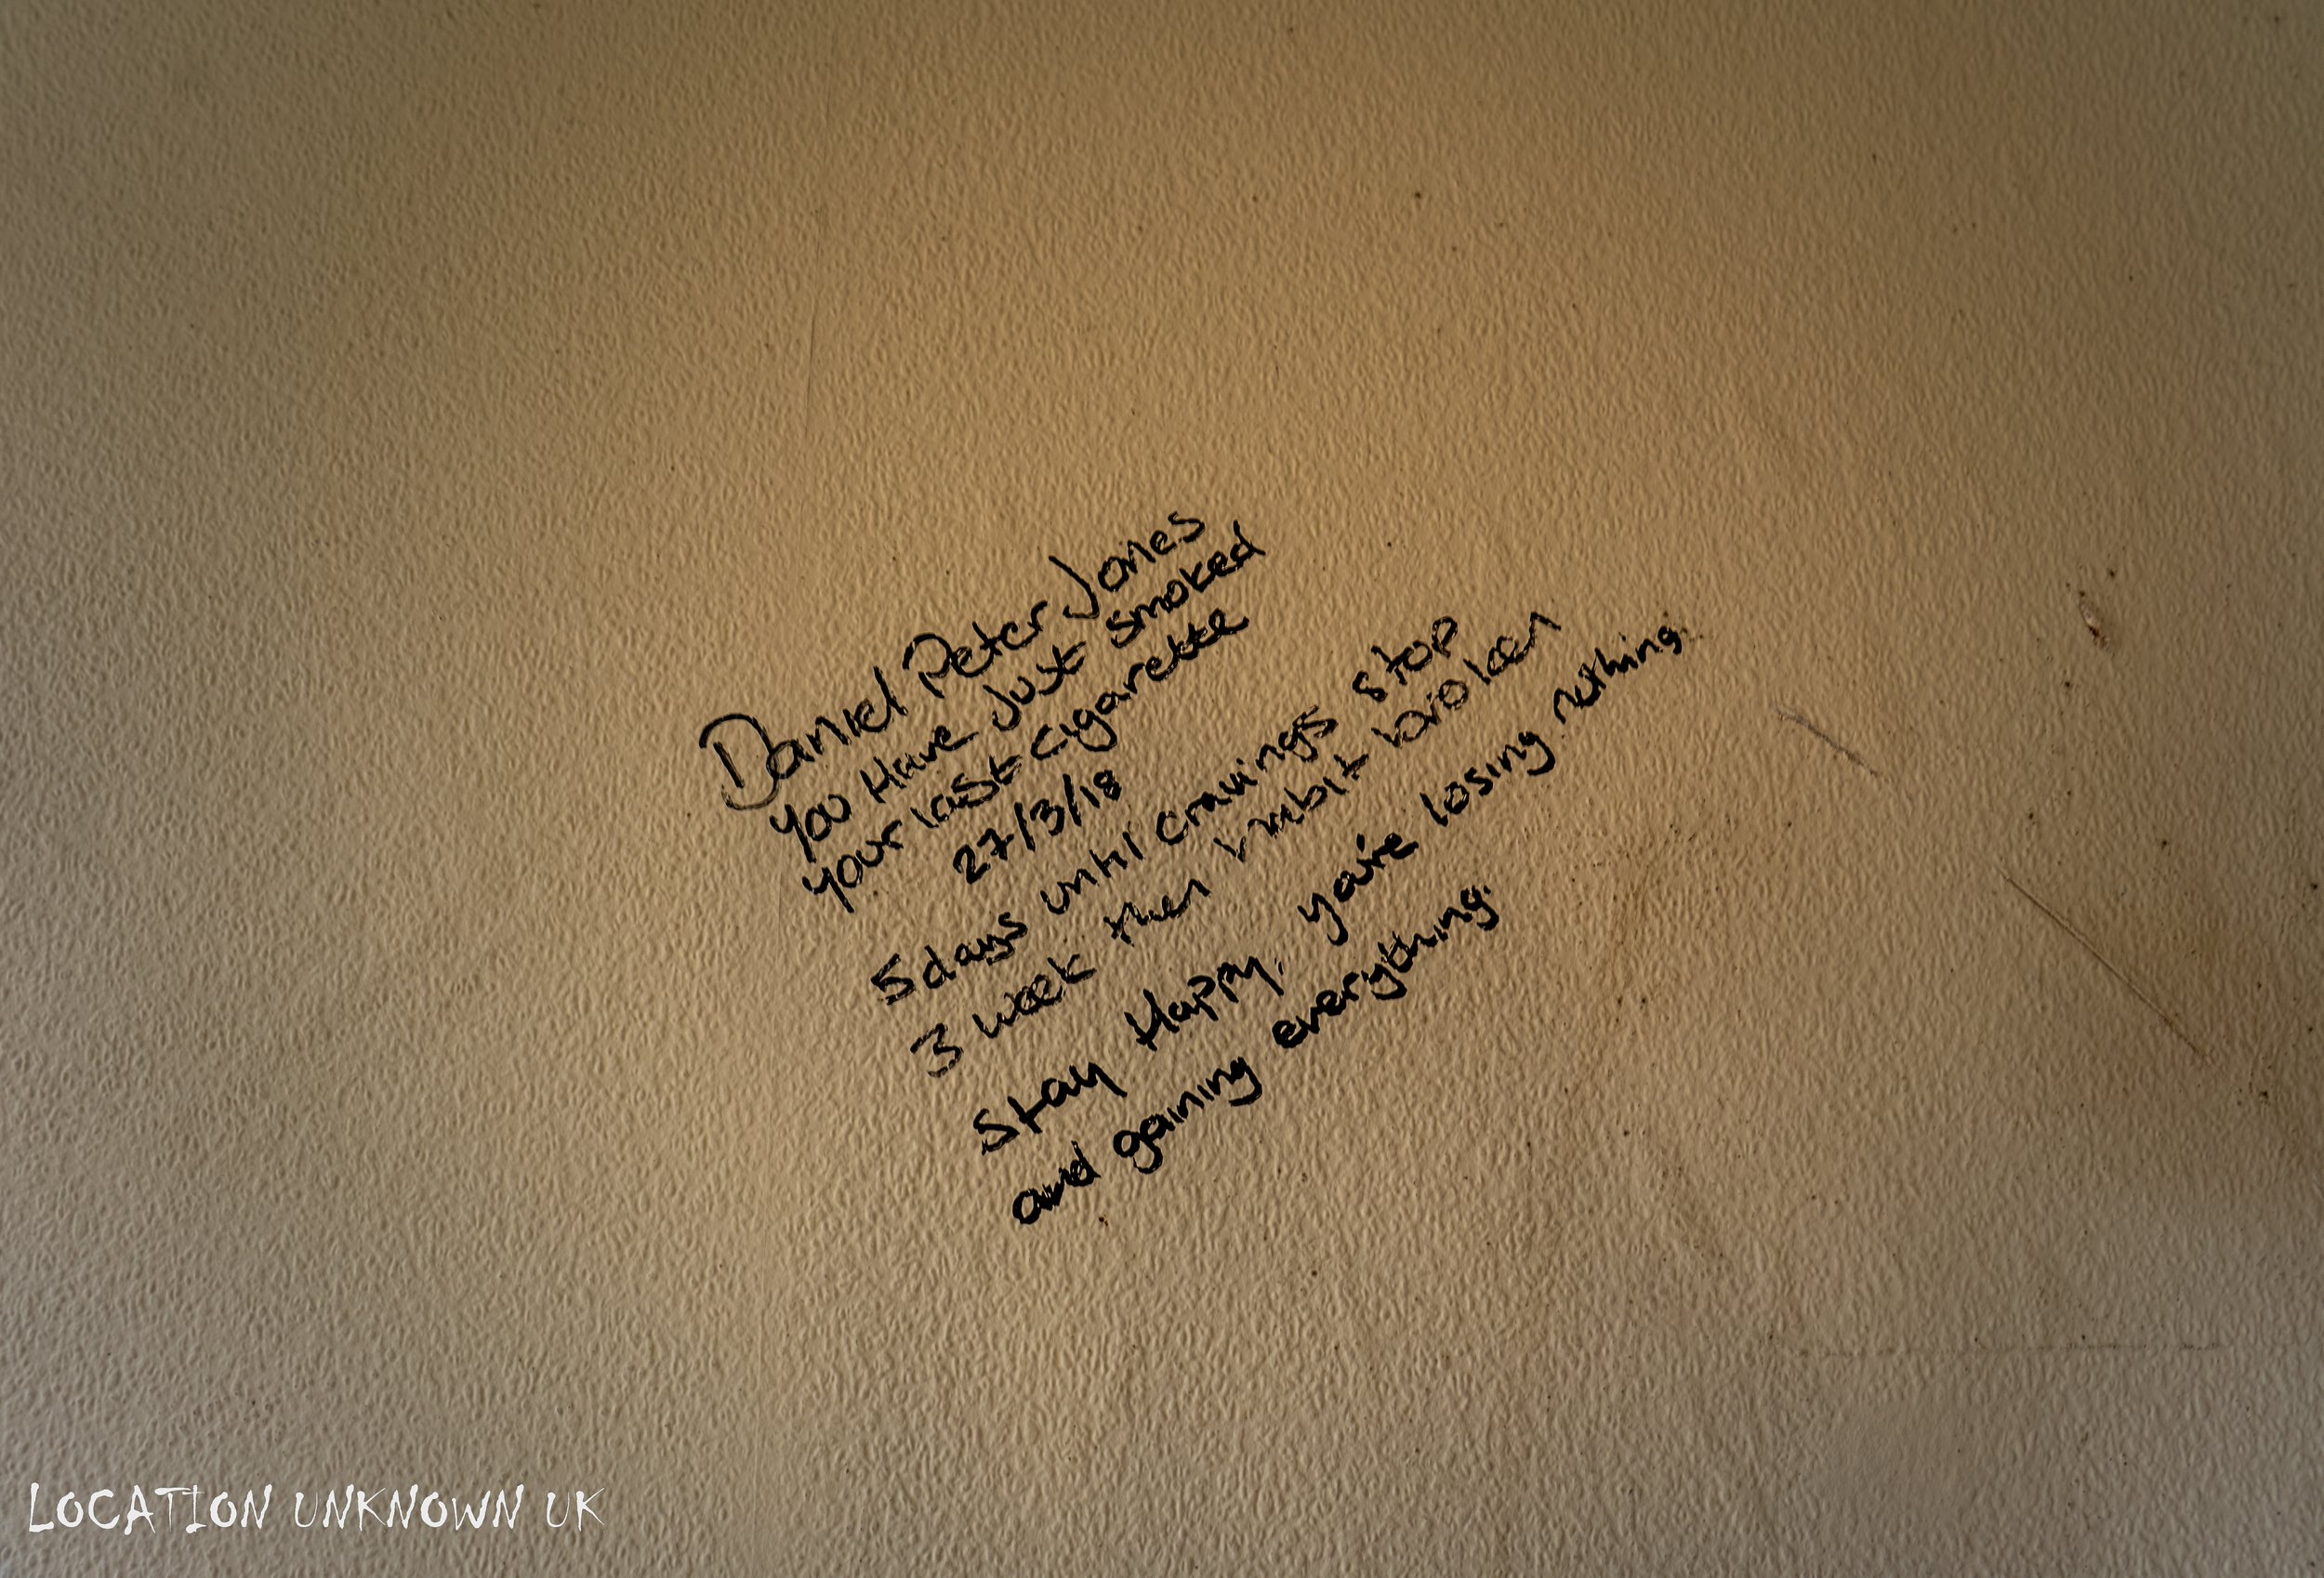 Daniel Peter Jones
you Have Just smoked
your last cigarette
27/3/18
5 days until cravings stop
3 week then habit broken
Stay Happy, you're losing nothing.
and gaining everything.
LOCATION UNKNOWN UK